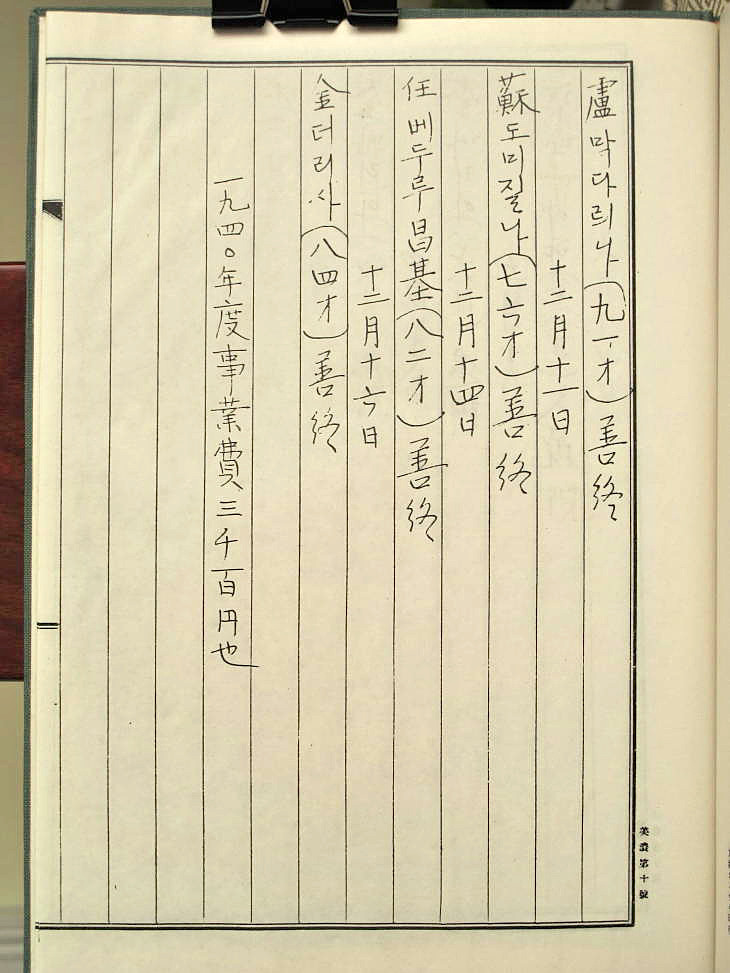 盧막다릐나(九一才)善終
十二月十一日
蘇도미질나(七六才)善終
十二月十四日
任베두루昌基(八二才)善終
十二月十六日
金더리사(八四才)善終
一九四〇年度事業費三千百円也
美濃第十號